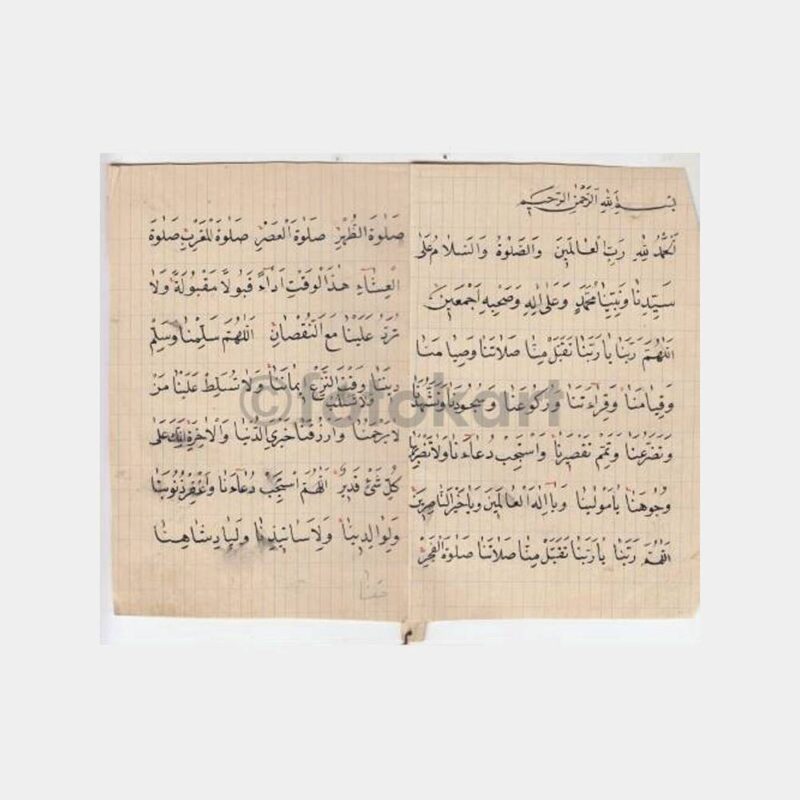 بسم الله الرحمن الرحيم
اَلْحَمْدُ لِلّٰهِ رَبِّ الْعَالَمِينَ وَالصَّلٰوةُ وَالسَّلَامُ عَلٰى
سَيِّدِنَا وَنَبِيِّنَا مُحَمَّدٍ وَعَلٰى اٰلِهِ وَصَحْبِهِ اَجْمَعِينَ
اَللّٰهُمَّ رَبَّنَا يَا رَبَّنَا تَقَبَّلْ مِنَّا صَلَاتَنَا وَصِيَامَنَا
وَقِيَامَنَا وَقِرَاءَتَنَا وَرُكُوعَنَا وَسُجُودَنَا وَتَشَهُّدَنَا
وَتَضَرُّعَنَا وَتَمِّمْ تَقْصِيرَنَا وَاسْتَجِبْ دُعَاءَنَا وَلَا تَضْرِبْ بِهَا
وُجُوهَنَا يَا مَوْلٰينَا وَيَا اِلٰهَ الْعَالَمِينَ وَيَا خَيْرَ النَّاصِرِينَ
اَللّٰهُمَّ رَبَّنَا يَا رَبَّنَا تَقَبَّلْ مِنَّا صَلَاتَنَا صَلٰوةَ الْفَجْرِ
صَلٰوةَ الظُّهْرِ صَلٰوةَ الْعَصْرِ صَلٰوةَ الْمَغْرِبِ صَلٰوةَ
الْعِشَاءِ هٰذَا الْوَقْتِ اَدَاءً قَبُولًا مَقْبُولَةً وَلَا
تَرُدَّ عَلَيْنَا مَعَ النُّقْصَانِ اَللّٰهُمَّ سَلِّمْنَا وَسَلِّمْ
دِينَنَا وَقْتَ النَّزْعِ اِيمَانَنَا وَلَا تُسَلِّطْ عَلَيْنَا مَنْ
وَلَا تَسْلُبْ
لَا يَرْحَمْنَا وَارْزُقْنَا خَيْرَيِ الدُّنْيَا وَالْاٰخِرَةِ اِنَّكَ عَلٰى
كُلِّ شَئٍ قَدِيرٌ اَللّٰهُمَّ اسْتَجِبْ دُعَاءَنَا وَاغْفِرْ ذُنُوبَنَا
وَلِوَالِدِينَا وَلِاَسَاتِيذِنَا وَلِپَادِشَاهِنَا
© fotokart